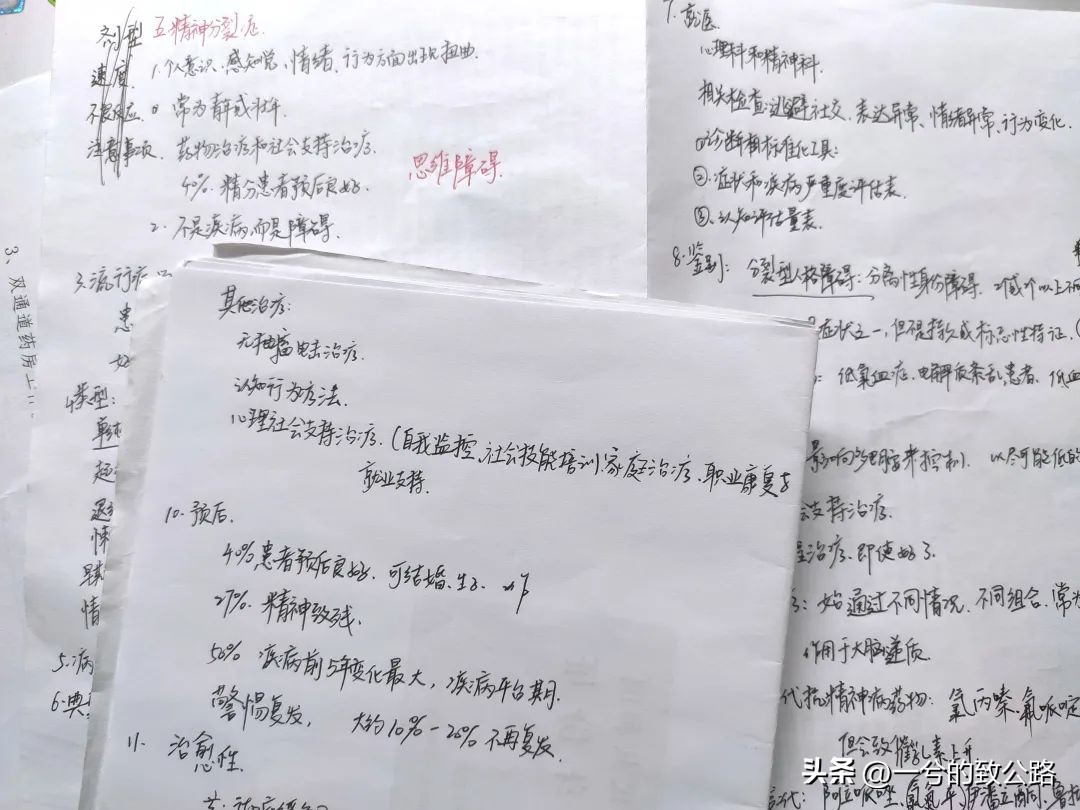 剂型
速度
不良反应
注意事项
五.精神分裂症.
1.个人意识、感知觉、情绪、行为方面出现扭曲.
常为青或壮年
药物治疗和社会支持治疗.
40%.精分患者预后良好.
2.不是疾病,而是障碍.
思维障碍.
3.流行症
患
4.类型:
5.病
6.典
3、双通道药房
7.就医
心理科和精神科.
相关检查:逃避社交、表达异常、情绪异常、行为变化.
①诊断用标准化工具:
②.症状和疾病严重度评估表.
③.认知评估量表.
8.鉴别:分裂型人格障碍:分离性身份障碍.2个或个以上不同
症状之一,但不是持久或标志性特征.
低氧血症、电解质紊乱患者、低血
影响 大脑来控制.以尽可能低的
会支持治疗.
治疗.即使好了
始通过不同情况.不同组合.常为
作用于大脑递质.
代抗精神病药物:氯丙嗪.氟哌啶
但会致催乳素上升
代:阿立哌唑
其他治疗:
无抽搐电击治疗.
认知行为疗法.
心理社会支持治疗.(自我监控、社会技能培训.家庭治疗、职业康复与
就业支持.
10.预后.
40%患者预后良好.可结婚.生子.
27%.精神致残.
50% 疾病前5年变化最大,疾病平台期.
警惕复发, 大约10%-20%不再复发.
11.治愈性.
头条 @一兮的致公路